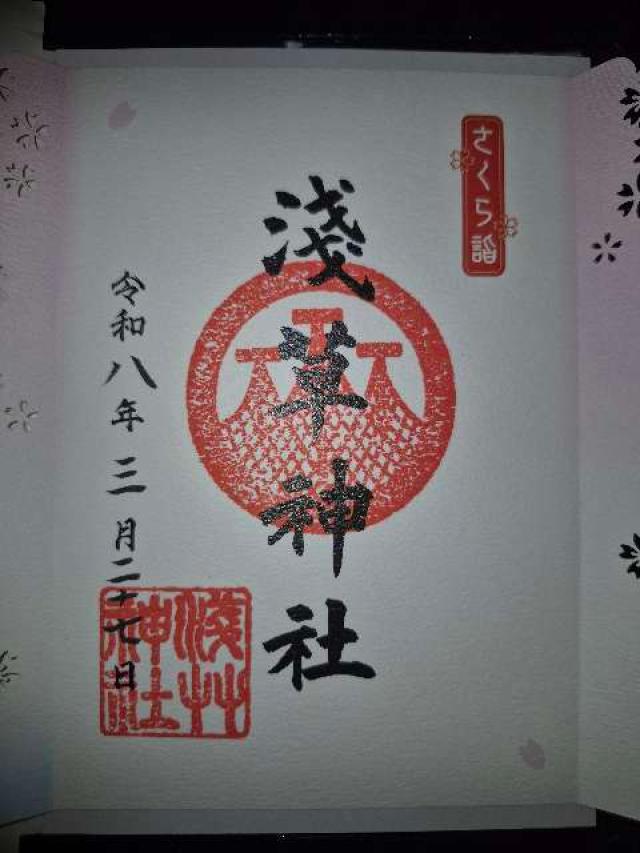 さくら詣
淺草神社
令和八年三月二十七日
淺草
神社